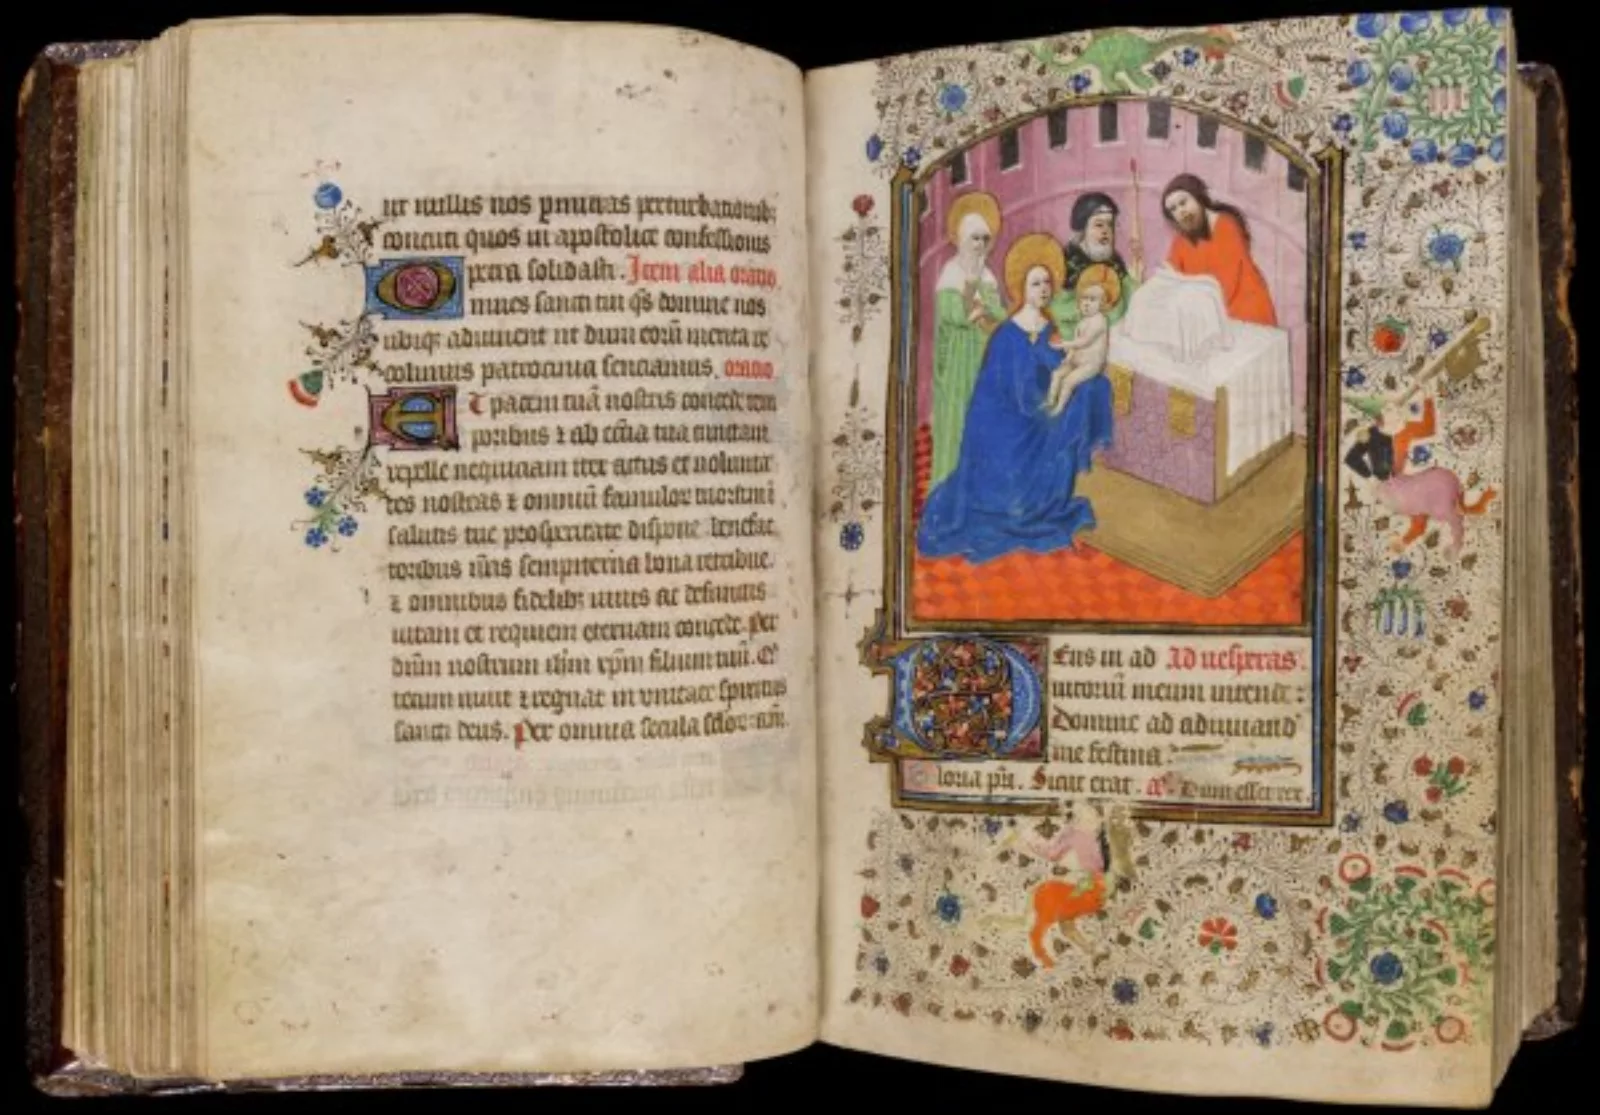 ut nullis nos pmittas perturbationib;
concuti quos in apostolice confessionis
petra solidasti. Item alia oratio
Omnes sancti tui qs domine nos
ubiq; adiuvent ut dum eorū merita re
colimus patrocinia sentiamus. oratio
Et pacem tuā nostris concede tem
poribus ⁊ ab eccīa tua cunctam
repelle nequitiam iter actus et volunta
tes nostras ⁊ omniū famulor tuorum ī
salutis tue prosperitate dispone. benefac
toribus nr̄is sempiterna bona retribue.
⁊ omnibus fidelib; vivis ac defunctis
vitam et requiem eternam concede. Per
dn̄m nostrum ih̄m xp̄m filium tuū. Q̄
tecum vivit ⁊ regnat in unitate spiritus
sancti deus. Per omnia secula sclor am̄.
Deus in ad Ad vesperas.
iutoriū meum intende:
Domine ad adiuvand'
me festina.
Gloria pr̄i. Sicut erat. a. Dum esset rex.